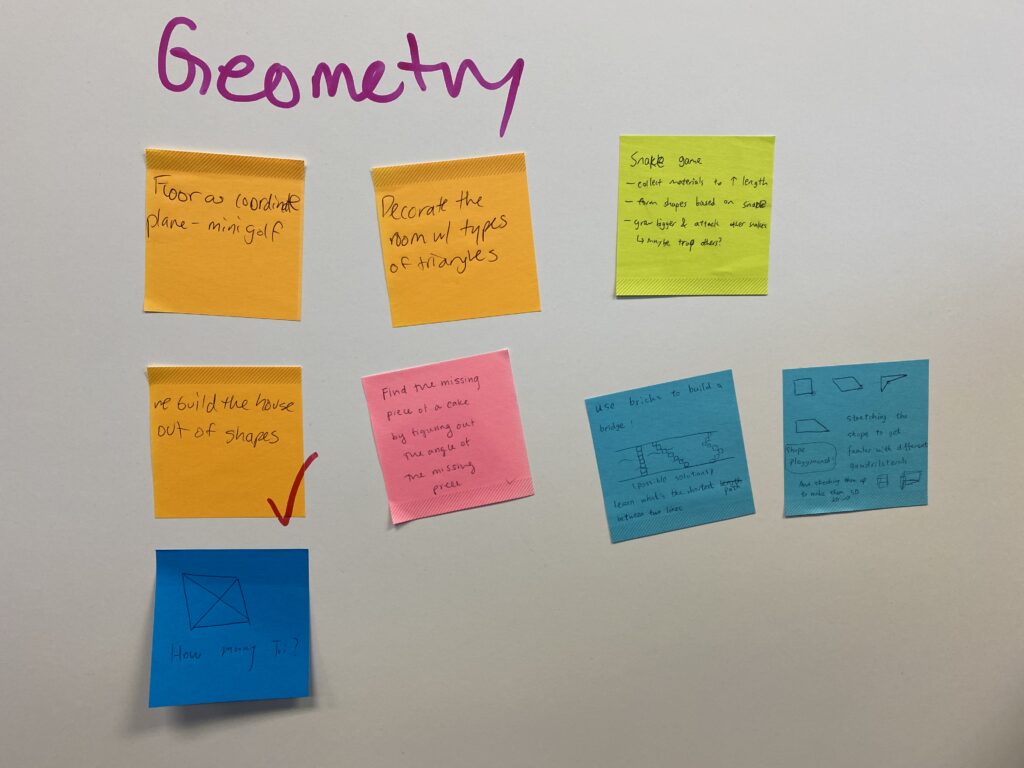 Geometry
Floor as coordinate
plane - mini golf
Decorate the
room w/ types
of triangles
Snake game
- collect materials to ↑ length
- form shapes based on snake
- grow bigger & attack other snakes
↳ maybe trap others?
re build the house
out of shapes
Find the missing
piece of a cake
by figuring out
the angle of
the missing
piece
use bricks to build a
bridge!
(possible solutions)
learn what's the shortest path
between two lines
stretching the
shape to get
familiar with different
quadrilaterals
Shape
playground
And checking them up
to make them 3D
How many Tri?